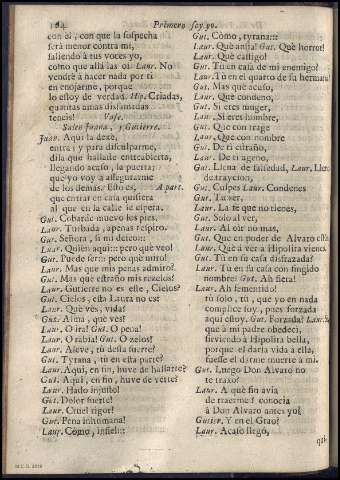 184 Primero soy yo.
con él, con que la sospecha
será menor contra mi,
saliendo à tus voces yo,
como que allà las oì. Laur. No
vendrè à hacer nada por ti
en enojarme, porque
lo estoy de verdad. Criadas,
quantas amas disfamadas
teneis! Vase.
Salen Juana, y Gutierre.
Juan. Aqui la dexè,
entra; y para disculparme,
dila que hallaste entreabierta,
llegando acaso, la puerta;
que yo voy à assegurarme
de los demàs. Esto es, A part.
que entrar en casa quisiera
al que en la calle le espera.
Gut. Cobarde muevo los pies.
Laur. Turbada, apenas respiro.
Gut. Señora, si mi deseo::
Laur. Quien aqui::: pero què veo!
Gut. Puede ser::: pero què miro!
Laur. Mas que mis penas admiro?
Gut. Mas què estraño mis rezelos?
Laur. Gutierre no es este, Cielos?
Gut. Cielos, esta Laura no es?
Laur. Què vès, vida?
Gut. Alma, què vès?
Laur. O ira! Gut. O pena!
Laur. O rabia! Gut. O zelos!
Laur. Aleve, tù desta suerte?
Gut. Tyrana, tù en esta parte?
Laur. Aqui, en fin, huve de hallarte?
Gut. Aqui, en fin, huve de vèrte?
Laur. Hado injusto!
Gut. Dolor fuerte!
Laur. Cruel rigor!
Gut. Pena inhumana!
Laur. Còmo, infiel:::
Gut. Còmo, tyrana:::
Laur. Què ansia! Gut. Què horror!
Laur. Què castigo!
Gut. Tù en casa de mi enemigo?
Laur. Tù en el quarto de su hermana?
Gut. Mas què acuso,
Laur. Què condeno,
Gut. Si eres muger,
Laur. Si eres hombre,
Gut. Que con trage
Laur. Que con nombre
Gut. De ti estraño,
Laur. De ti ageno,
Gut. Llena de falsedad, Laur. Lleno
de traicion,
Gut. Culpes Laur. Condenes
Gut. Tu ser,
Laur. La fè que no tienes,
Gut. Solo al ver,
Laur. Al oìr no mas,
Gut. Que en poder de Alvaro estàs?
Laur. Què à vèr à Hipolita vienes?
Gut. Tù en su casa disfrazada?
Laur. Tù en su casa con fingido
nombre? Gut. Ah fiera!
Laur. Ah fementido!
tù solo, tù, que yo en nada
complice soy, pues forzada
aqui estoy. Gut. Forzada? Laur. Sì
que à mi padre obedeci,
sirviendo à Hipolita bella,
porque el darla vida à ella,
fuesse el darme muerte à mi.
Gut. Luego Don Alvaro no
te traxo?
Laur. A què fin avia
de traerme? conocia
à Don Alvaro antes yo?
Gutier. Y en el Grao?
Laur. Acaso llegò,